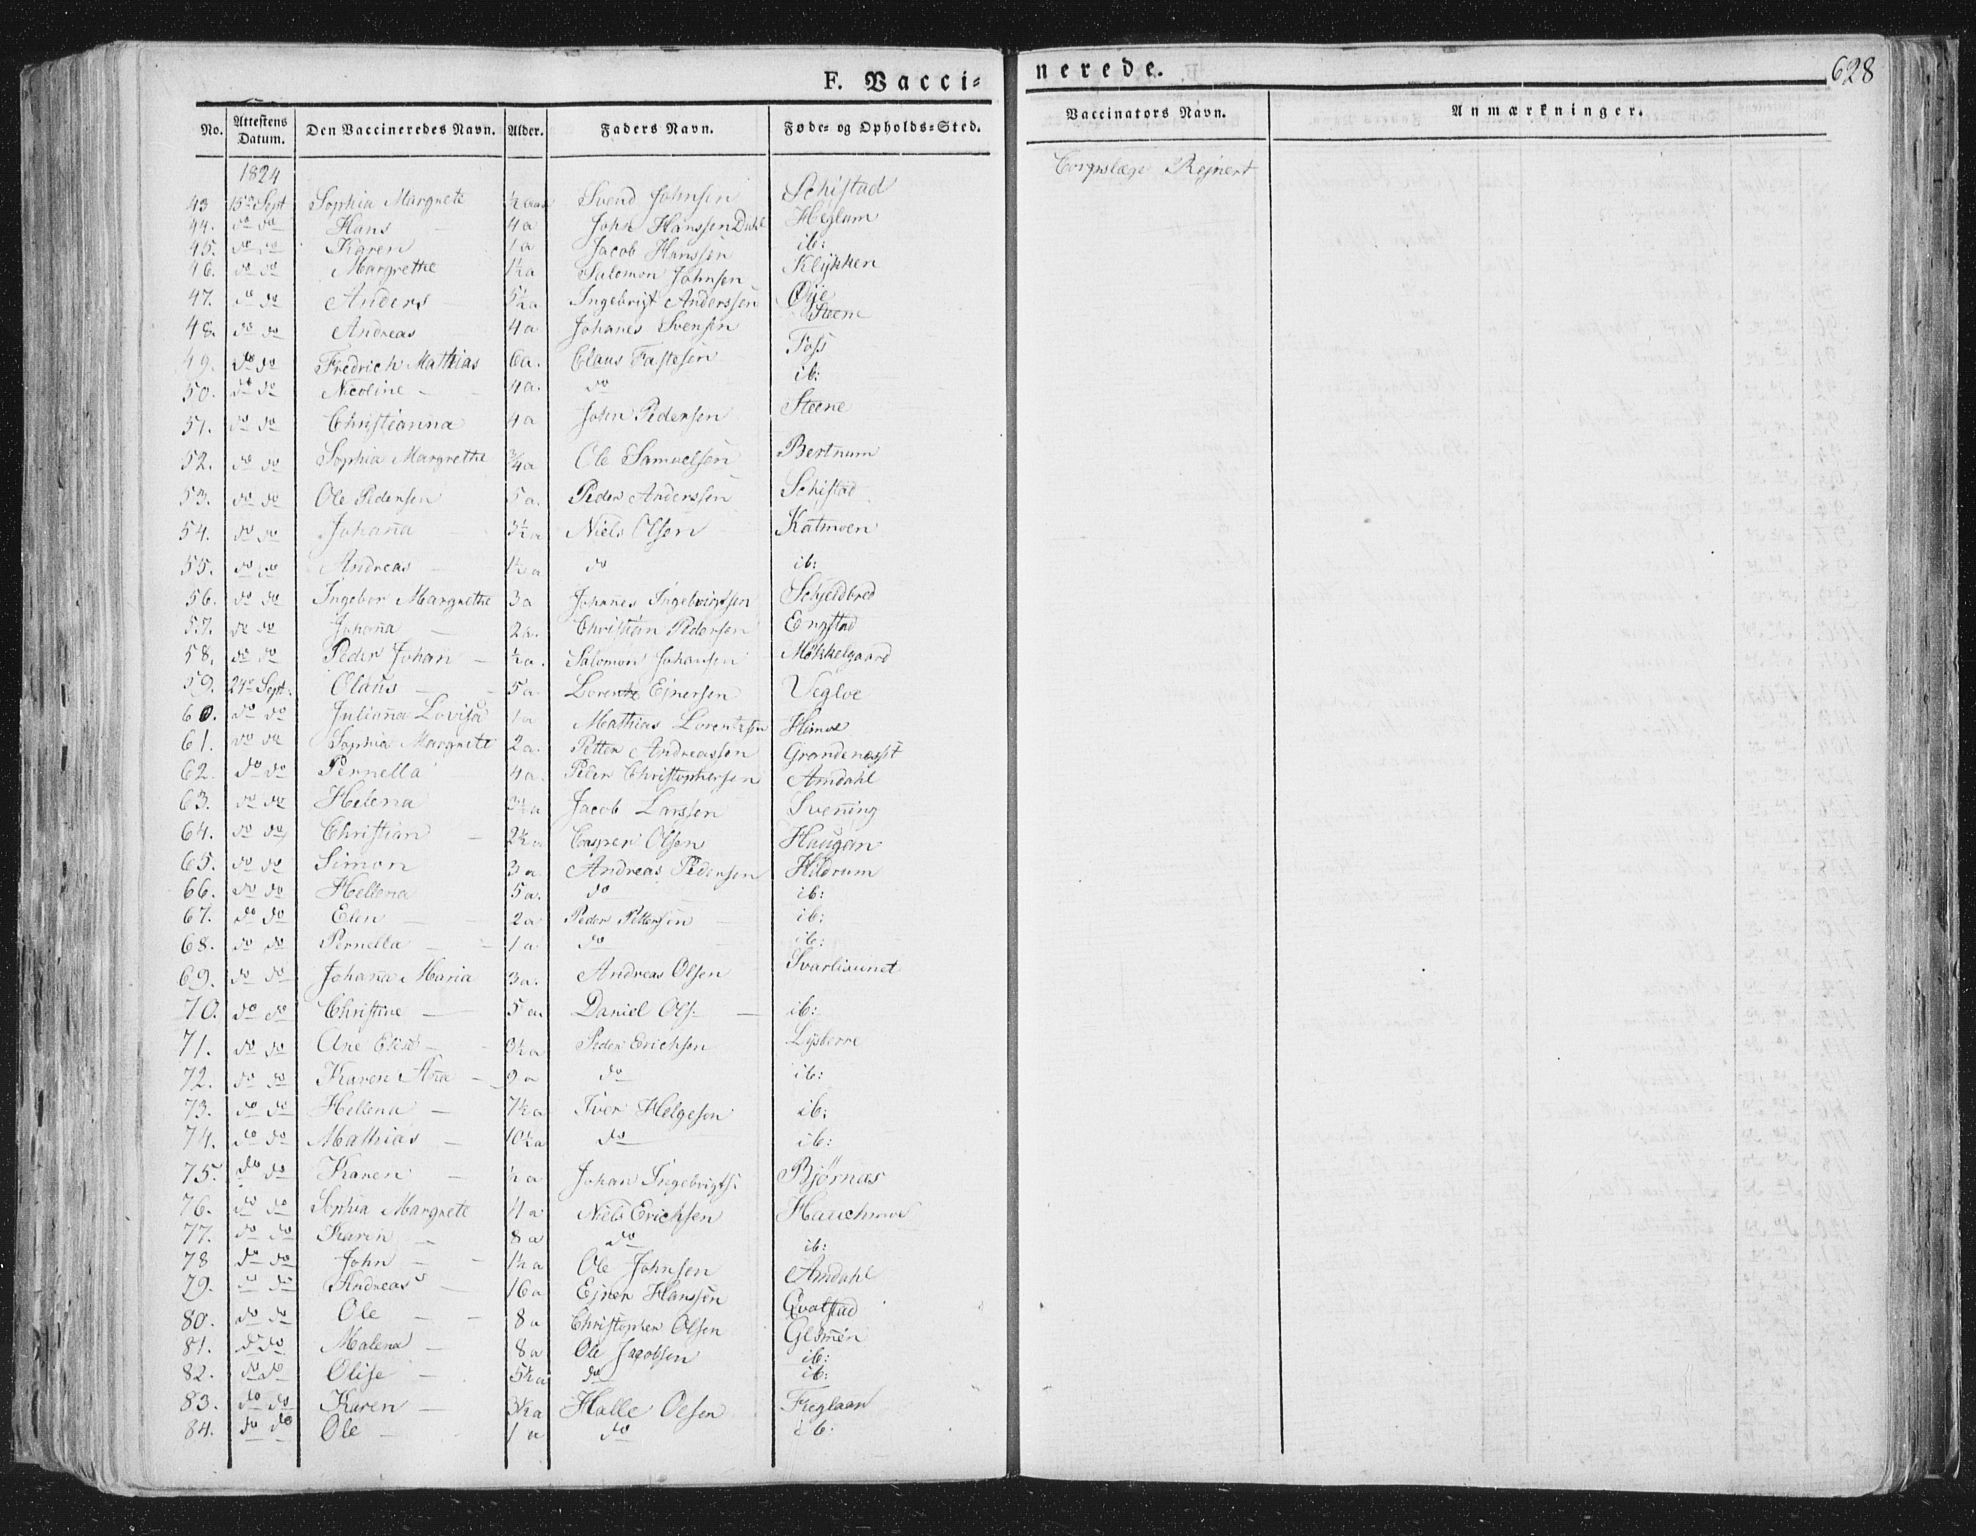 628
F. Vacci-
nerede.
No. Attestens Datum. Den Vaccineredes Navn. Alder. Faders Navn. Føde- og Opholds-Sted. Vaccinators Navn. Anmærkninger.
1824 Corpslæge Rejnert
43 15de Sept Sophia Margrete ½ Svend Johnsen Schistad
44. do do Hans 4 a John Hanssen Heglum
45. do do Karen 1 a Jacob Hanssen ib:
46. do do Margrethe 1½ a Salomon Johnsen Klykken
47. do do Anders 5½ a Ingebrigt Anderssen Øÿe
48. do do Andreas 4 a Johanes Svensen Steene
49. do do Fredrich Mathias 6 a. Claus Fastesen Foss
50. do do Nicoline 4 a. do ib:
51. do do Christianna 4 a John Pedersen Steene
52. do do Sophia Margrethe ¾ a Ole Samuelsen Bertnum
53. do do Ole Pedersen 5 a. Peder Anderssen Schistad
54. do do Johan̄a 3½ a Niels Olsen Katmoen
55. do do Andreas 1½ a do ib:
56. do do Ingebor Margrethe 3 a Johan̄es Ingebrigtsen Schjeldbred
57. do do Johan̄a 2½. Christian Pedersen Engstad
58. do do Peder Johan ½ a. Salomon Johansen Møkkelgaard
59. 24de Sept. Olaus 5 a Lorentz Ejnersen Vegloe
60. do do Julian̄a Lovisa 1 a Mathias Lorentzsen Himoe
61. do do Sophia Margrete 2 a. Petter Andreassen Grandenesset
62. do do Pernella 4 a. Peder Christophersen Amdahl
63. do do Helena 3½ a Jacob Larssen Sven̄ing
64. do do Christian 2½ a Casper Olsen Haugan
65. do do Simon 3 a Andreas Pedersen Hildrum
66. do do Hellena 5 a. do ib:
67. do do Elen 2 a Peder Pettersen ib:
68. do do Pernella 1 a do ib:
69. do do Johan̄a Maria 3 a. Andreas Olsen Svarlisunet
70. do do Christine 5 a. Daniel Ols: ib:
71. do do Ane Elise 3½ a Peder Erichsen Lysberre
72. do do Karen An̄a 9 a do ib:
73. do do Hellena 7½ a Iver Helgesen ib:
74. do do Mathias 10½ a do ib:
75. do do Karen ½ a Johan Ingebrigts: Bjørnæs
76. do do Sophia Margrete 4 a Niels Erichsen Hauchmoe
77. do do Karen 8 a do ib:
78 do do John 1½ a Ole Johnsen Amdahl
79. do do Andreas 16 a Ejner Hanssen
80. do do Ole 8 a Christopher Olsen Qvalstad
81. do do Malena 8 a Ole Jacobsen Glømen
82. do do Olise 5½ a do ib: ib:
83. do do Karen 3½ a Halle Olsen Freglaan
84. do do Ole 1 a do ib: